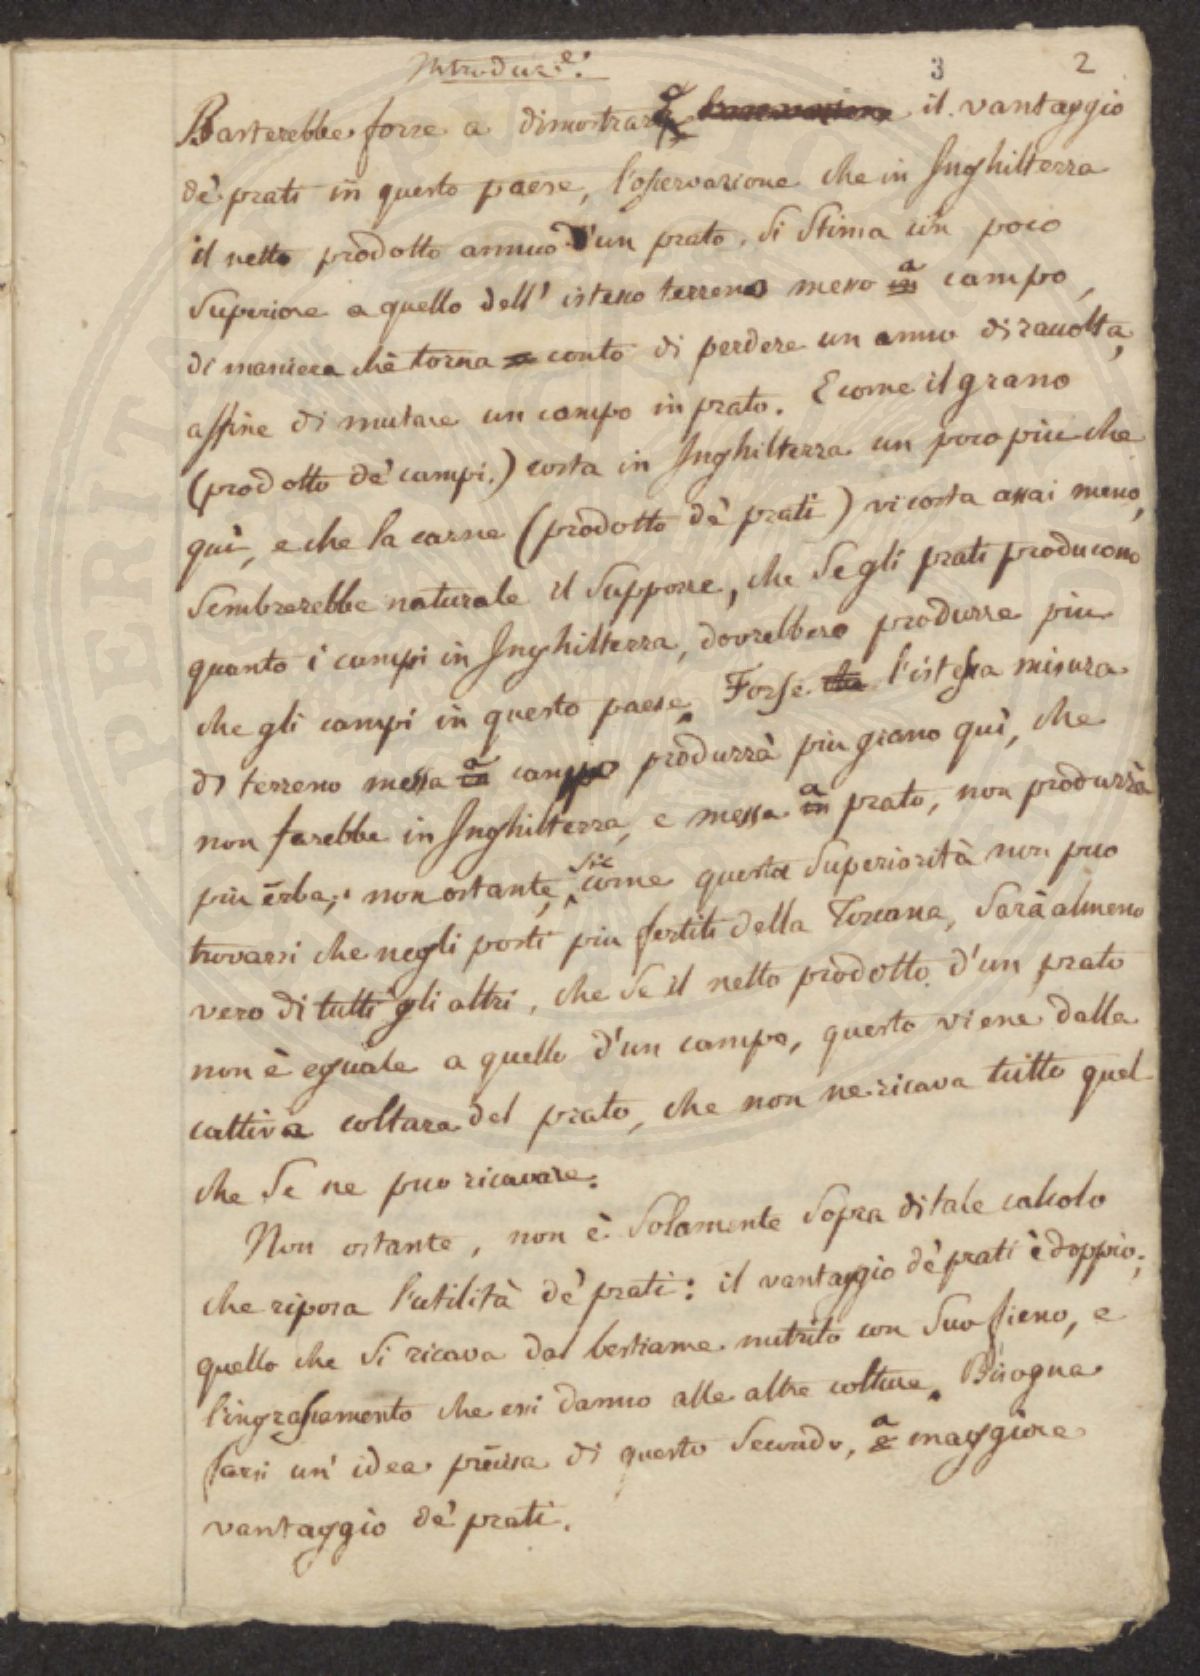 Introduz.e:
3 2
Basterebbe forse a dimostrare il vantaggio
dè prati in questo paese, l'osservazione che in Inghilterra
il netto prodotto annuo d'un prato, si stima un poco
superiore a quello dell' istesso terreno messo a campo,
di maniera chè torna conto di perdere un anno di raccolta,
affine di mutare un campo in prato. E come il grano
(prodotto de' campi.) costa in Inghilterra un poco più che
quì, e che la carne (prodotto dè prati) vi costa assai meno,
sembrerebbe naturale il supporre, che se gli prati producono
quanto i campi in Inghilterra, dovrebbero produrre più
che gli campi in questo paese. Forse l'istessa misura
di terreno messa a campo produrrà più grano quì, che
non farebbe in Inghilterra, e messa a prato, non produrrà
più erba; non ostante, siccome questa superiorità non può
trovarsi che negli posti più fertili della Toscana, sarà almeno
vero di tutti gli altri, che se il netto prodotto d'un prato
non è eguale a quello d'un campo, questo viene dalla
cattiva coltura del prato, che non ne ricava tutto quel
che se ne può ricavare.
Non ostante, non è solamente sopra di tale calcolo
che riposa l'utilità dè prati: il vantaggio dè prati è doppio;
quello che si ricava dal bestiame nutrito con suo fieno, e
l'ingrassamento che essi danno alle altre colture. Bisogna
farsi un' idea precisa di questo secondo, e maggiore
vantaggio dè prati.